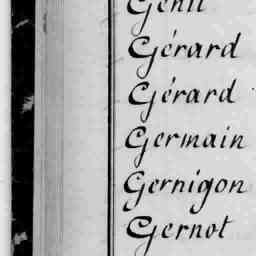 Génit
Gérard
Gérard
Germain
Gernigon
Gernot